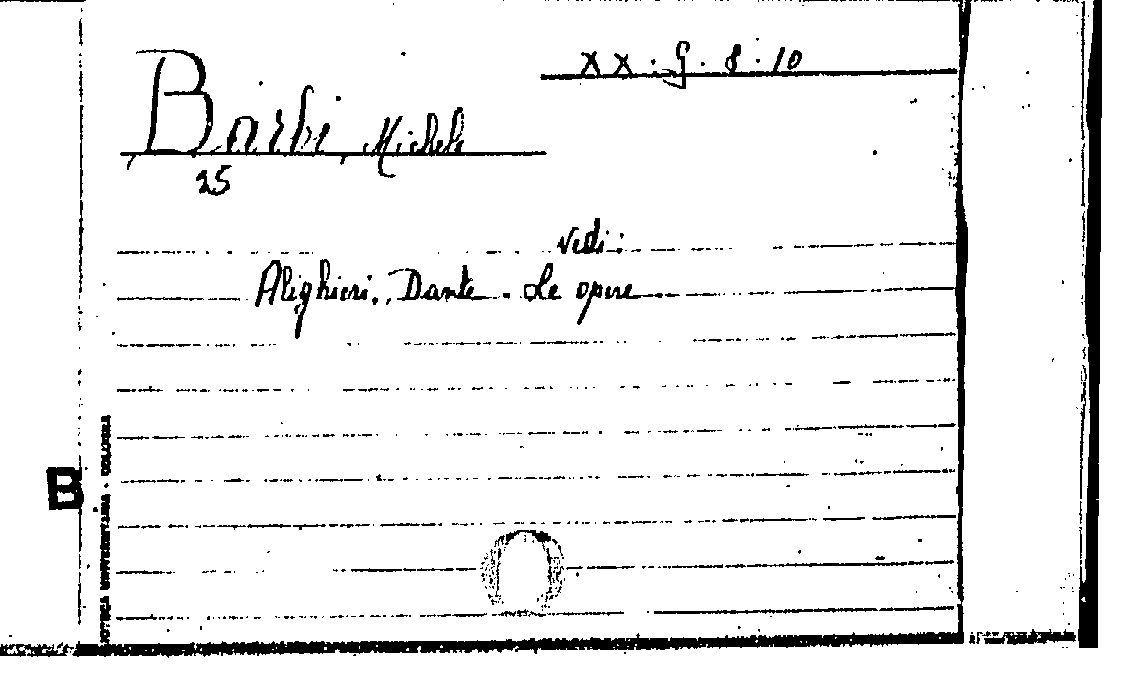 XX.G.8.10
Barbi, Michele
25
Vedi:
Alighieri, Dante. Le opere
B
OTECA UNIVERSITARIA - BOLOGNA